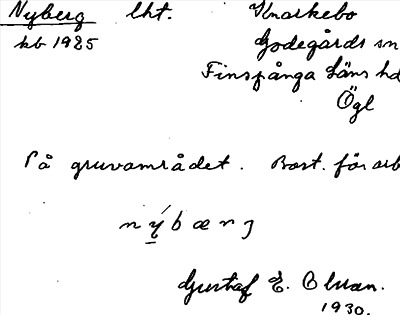 Nyberg lht. Knarkebo
kb 1925 Godegårds sn
Finspånga läns hd
Ögl
På gruvområdet. Bost. för arb
nybærg
Gustaf E. Olson.
1930.